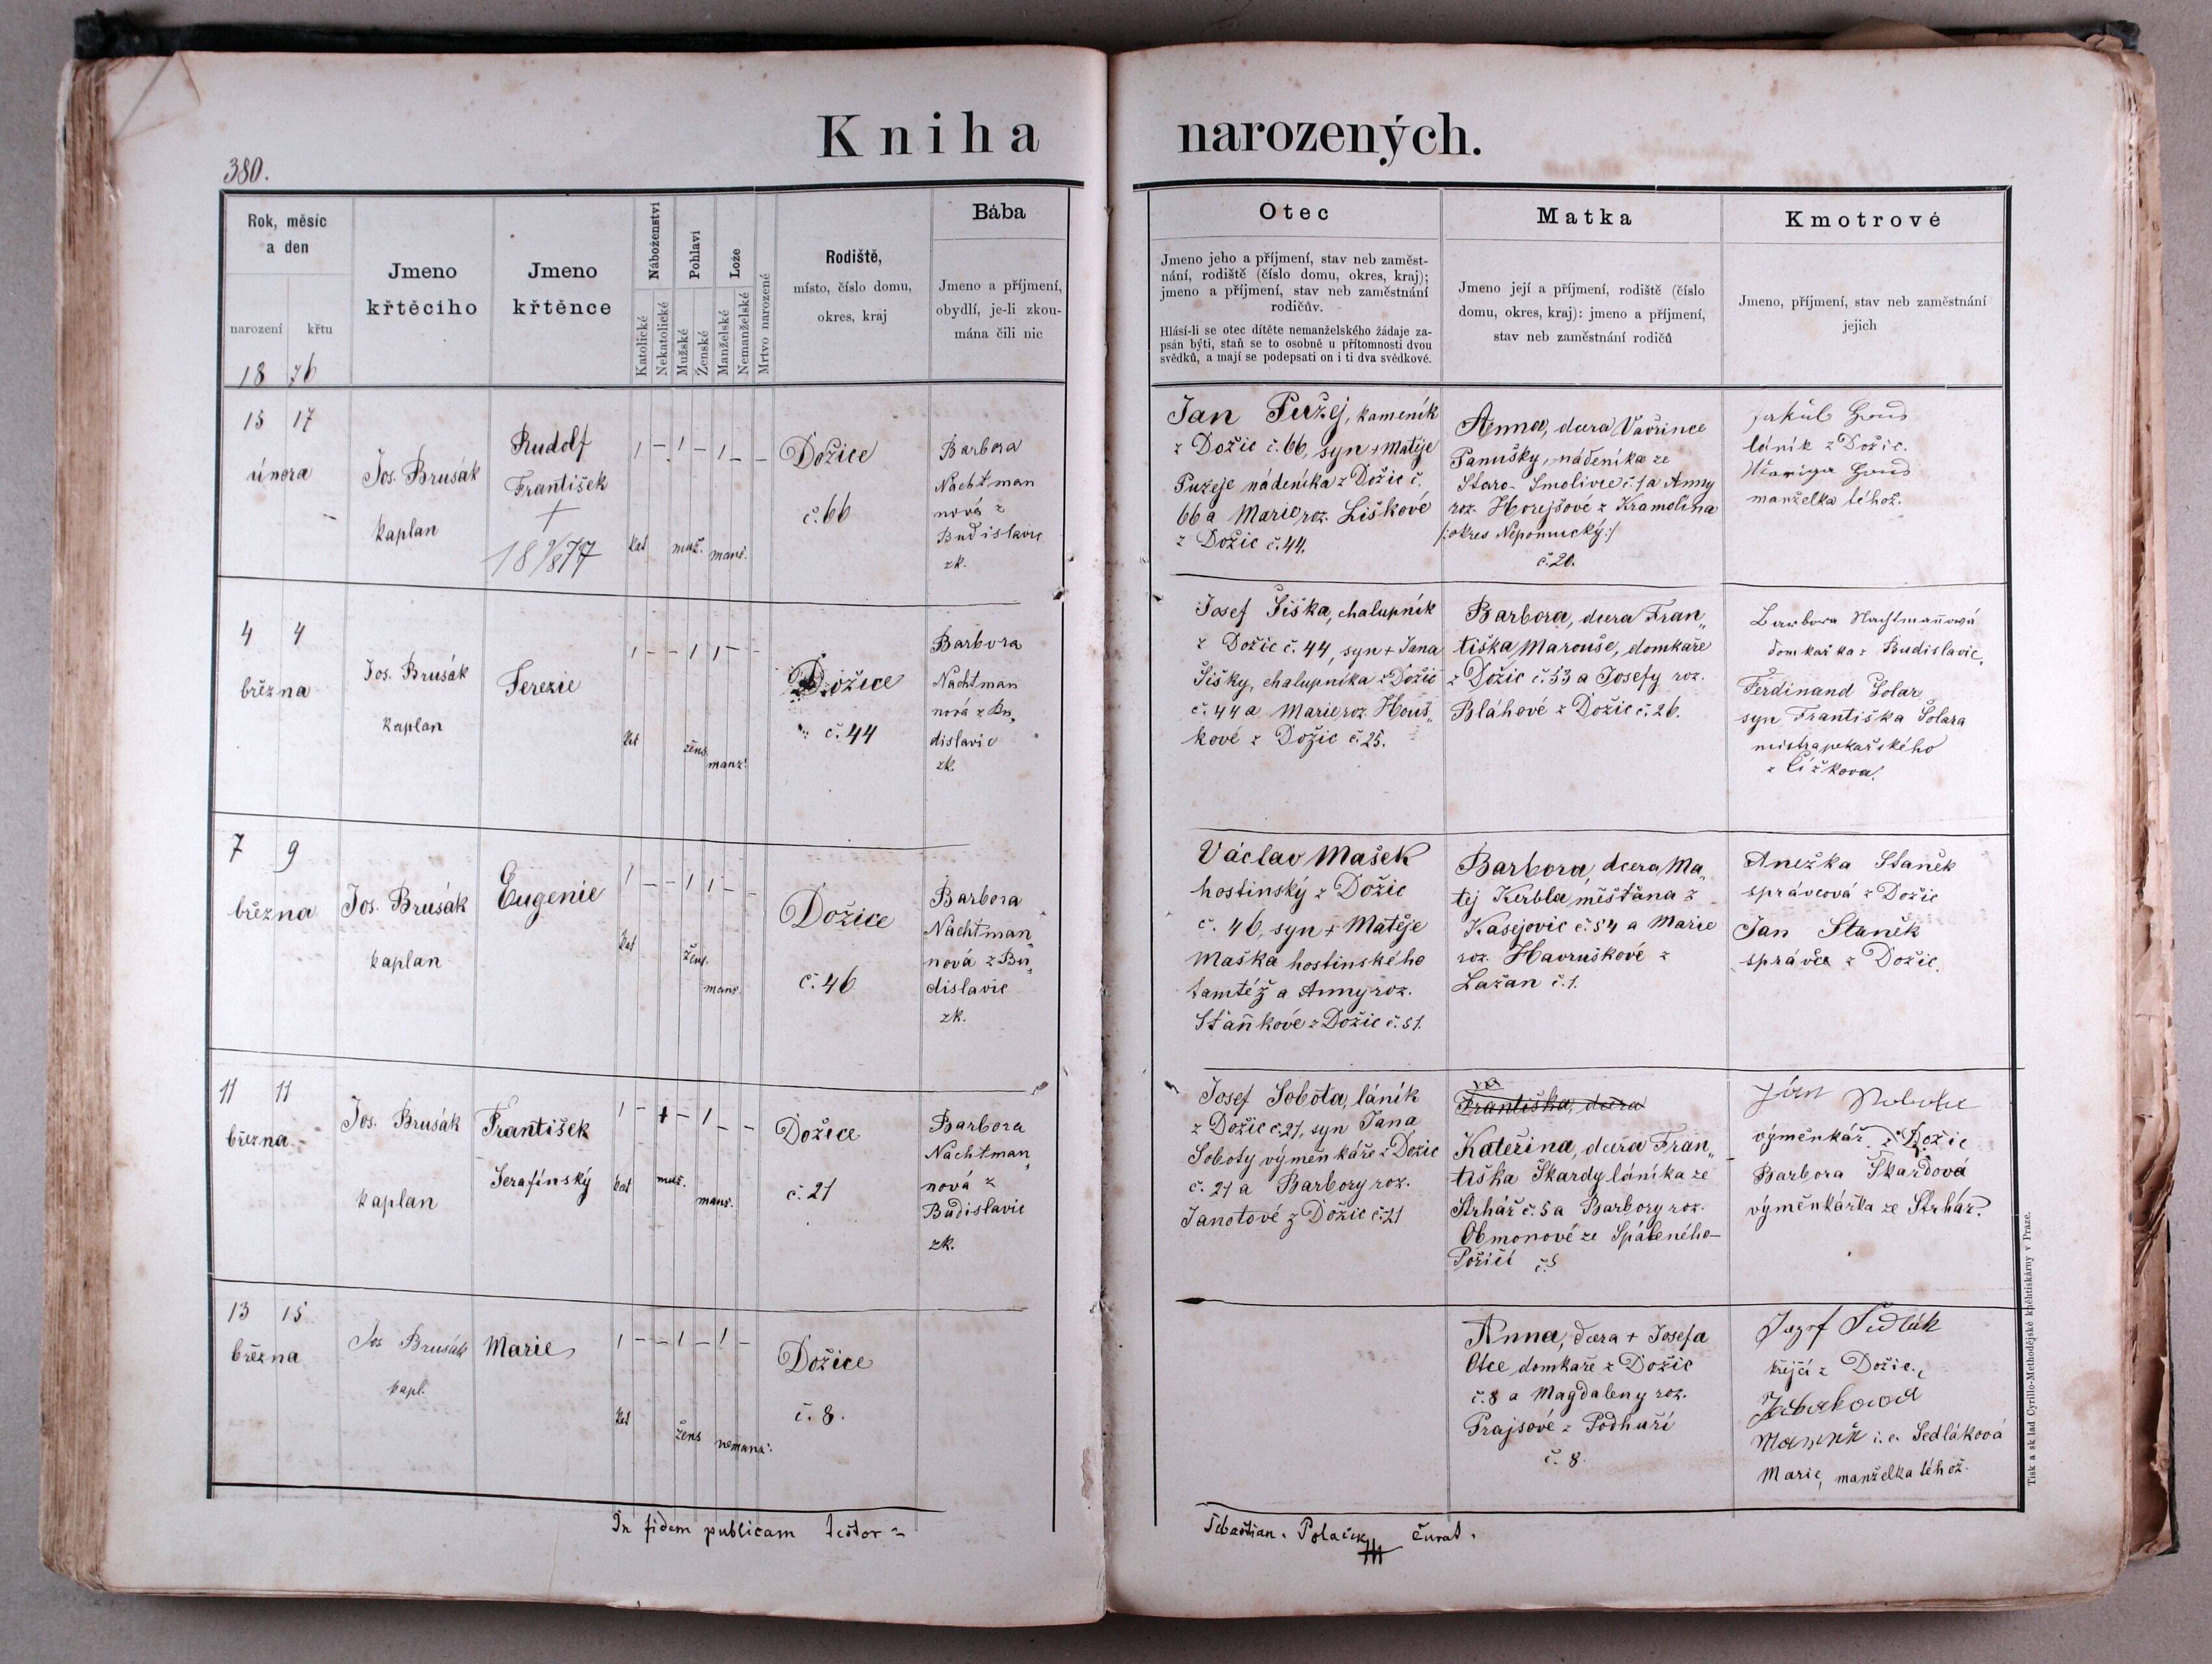 Kniha narozených.
380.
Rok, měsíc
a den
narození křtu
18 76
Jmeno
křtěcího
Jmeno
křtěnce
Náboženství
Katolické
Nekatolické
Pohlaví
Mužské
Ženské
Lože
Manželské
Nemanželské
Mrtvo narozené
Rodiště,
místo, číslo domu,
okres, kraj
Bába
Jmeno a příjmení,
obydlí, je-li zkou-
mána čili nic
Otec
Jmeno jeho a příjmení, stav neb zaměst-
nání, rodiště (číslo domu, okres, kraj);
jmeno a příjmení, stav neb zaměstnání
rodičův.
Hlásí-li se otec dítěte nemanželského žádaje za-
psán býti, staň se to osobně u přítomnosti dvou
svědků, a mají se podepsati on i ti dva svědkové.
Matka
Jmeno její a příjmení, rodiště (číslo
domu, okres, kraj): jmeno a příjmení,
stav neb zaměstnání rodičů
Kmotrové
Jmeno, příjmení, stav neb zaměstnání
jejich
15 17
února
Jos. Brusák
kaplan
Rudolf
František
+
18 9/8 77
1 – 1 – 1 – –
kat muž. manž.
Dožice
č. 66
Barbora
Nachtman
nová z
Budislavic
zk.
Jan Pužej, kameník
z Dožic č. 66, syn + Matěje
Pužeje nádeníka z Dožic č.
66 a Marie roz. Liškové
z Dožic č. 44.
Anna, dcera Vavřince
Panušky, nádeníka ze
Staro-Smolivce č. 1 a Anny
roz. Horejšové z Kramolína
/: okres Nepomucký :/
č. 20.
láník z Dožic.
manželka téhož.
4 4
března
Jos. Brusák
kaplan
Terezie
1 – – 1 1 – –
kat žens. manž.
Dožice
č. 44
Barbora
Nachtman
nová z Bu„
dislavic
zk.
Josef Šiška, chalupník
z Dožic č. 44, syn + Jana
Šišky, chalupníka z Dožic
č. 44 a Marie roz. Houš„
kové z Dožic č. 25.
Barbora, dcera Fran„
tiška Marouše, domkaře
z Dožic č. 53 a Josefy roz.
Bláhové z Dožic č. 26.
Barbora Nachtmanová
domkařka z Budislavic,
Ferdinand Šolar
syn Františka Šolara
mistra pekařského
z Čížkova.
7 9
března
Jos. Brusák
kaplan
Eugenie
1 – – 1 1 – –
kat žens. manž.
Dožice
č. 46
Barbora
Nachtman„
nová z Bu„
dislavic
zk.
Václav Mašek
hostinský z Dožic
č. 46, syn + Matěje
Maška hostinského
tamtéž a Anny roz.
Staňkové z Dožic č. 51.
Barbora, dcera Ma„
těj Kerbla měšťana z
Kasejovic č. 54 a Marie
roz. Havruškové z
Lažan č. 1.
Anežka Staněk
správcová z Dožic
Jan Staněk
správce z Dožic.
11 11
března
Jos. Brusák
kaplan
František
Serafínský
1 – 1 – 1 – –
kat muž. manž.
Dožice
č. 21
Barbora
Nachtman„
nová z
Budislavic
zk.
Josef Sobota, láník
z Dožic č. 21, syn Jana
Soboty výměnkáře z Dožic
č. 21 a Barbory roz.
Janotové z Dožic č. 21
Františka, dcera
Kateřina, dcera Fran„
tiška Škardy láníka ze
Strhář č. 5 a Barbory roz.
Obmonové ze Spáleného-
Poříčí č. 5
výměnkář z Dožic
Barbora Škardová
výměnkářka ze Strhář.
13 15
března
Jos. Brusák
kapl.
Marie
1 – – 1 – 1 –
kat žens nemanž.
Dožice
č. 8.
Anna, dcera + Josefa
Otce domkaře z Dožic
č. 8 a Magdaleny roz.
Prajsové z Podhuří
č. 8.
Jozef Sedlák
krejčí z Dožic.
i. e. Sedláková
Marie, manželka téhož.
In fidem publicam testor
Sebastian Polaček Curat.
Tisk a sklad Cyrillo-Methodějské knihtiskárny v Praze.